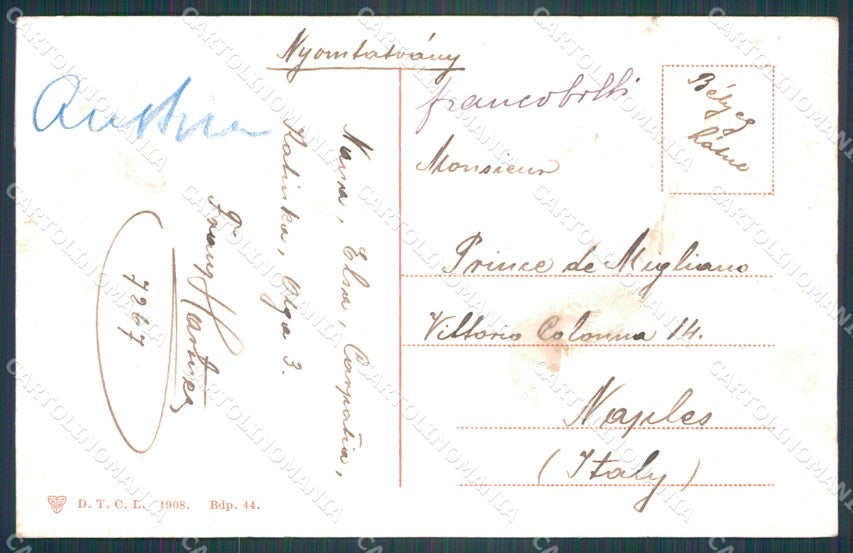 Nyomtatvány
Austria
francobolli
Bélyeg
hátul
Monsieur
Prince de Migliano
Vittorio Colonna 14.
Naples
(Italy)
Nanna, Elsa, Carpatia,
Katinka, Olga 3.
Franz
7267
D. T. C. L. 1908. Bdp. 44.
CARTOLINOMANIA